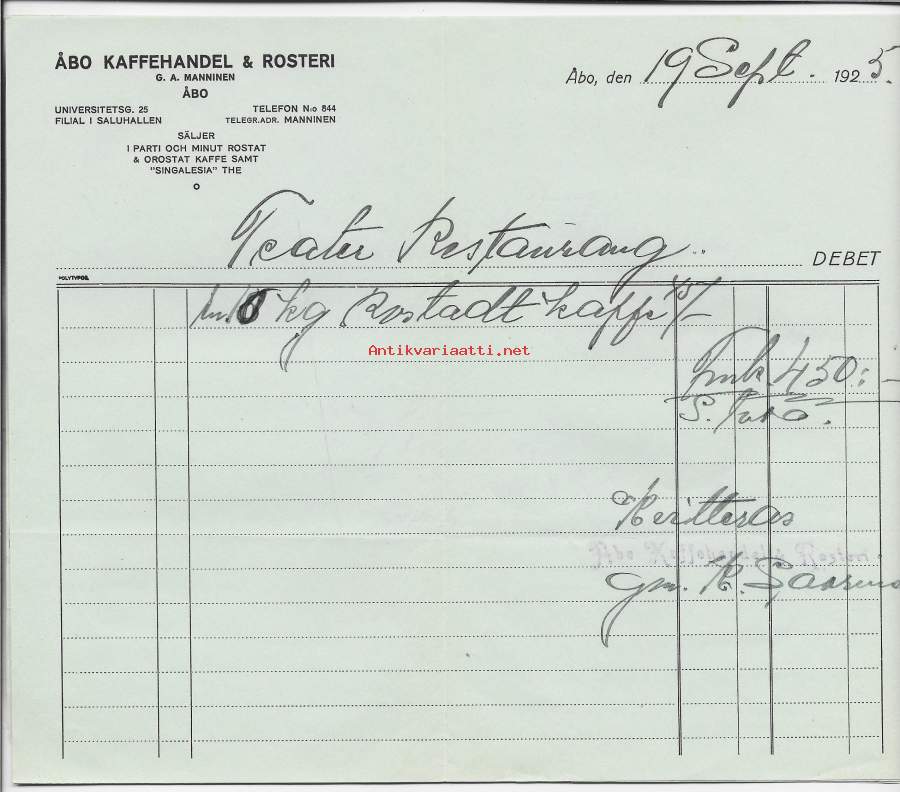 ÅBO KAFFEHANDEL & ROSTERI
G. A. MANNINEN
ÅBO
UNIVERSITETSG. 25 TELEFON N:o 844
FILIAL I SALUHALLEN TELEGR.ADR. MANNINEN
SÄLJER
I PARTI OCH MINUT ROSTAT
& OROSTAT KAFFE SAMT
"SINGALESIA" THE
Åbo, den 19 Sept. 1925.
Teater Restaurang
DEBET
POLYTYPOS.
kg Rostadt kaffe 45/-
Fmk 450:-
S. Turo.
Kvitteras
gm. K.
Antikvariaatti.net